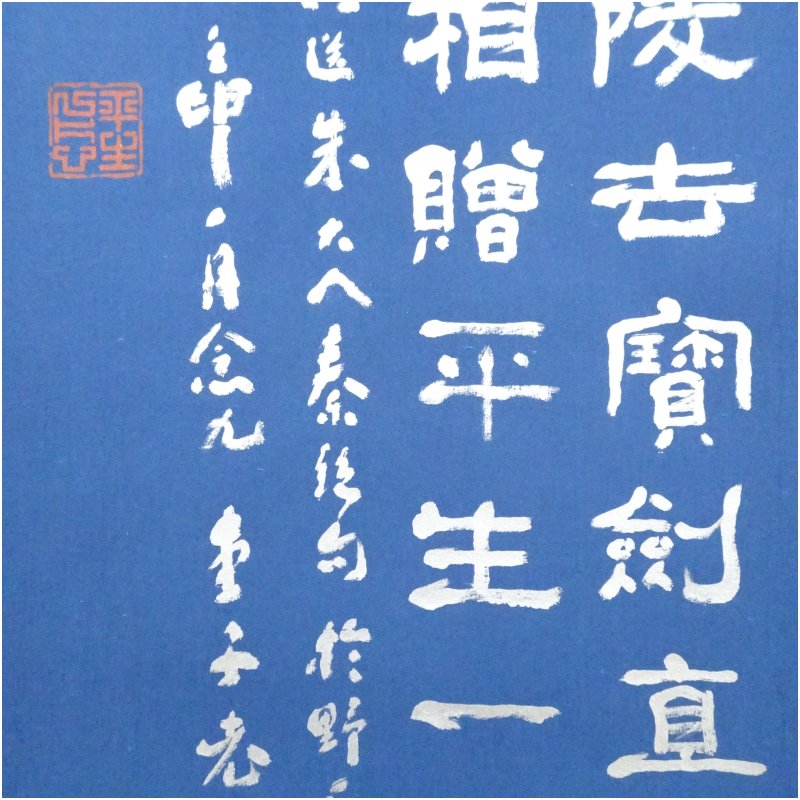 陵去寶劍直
相贈平生一
送朱大入秦絕句於野
印一月念九 老